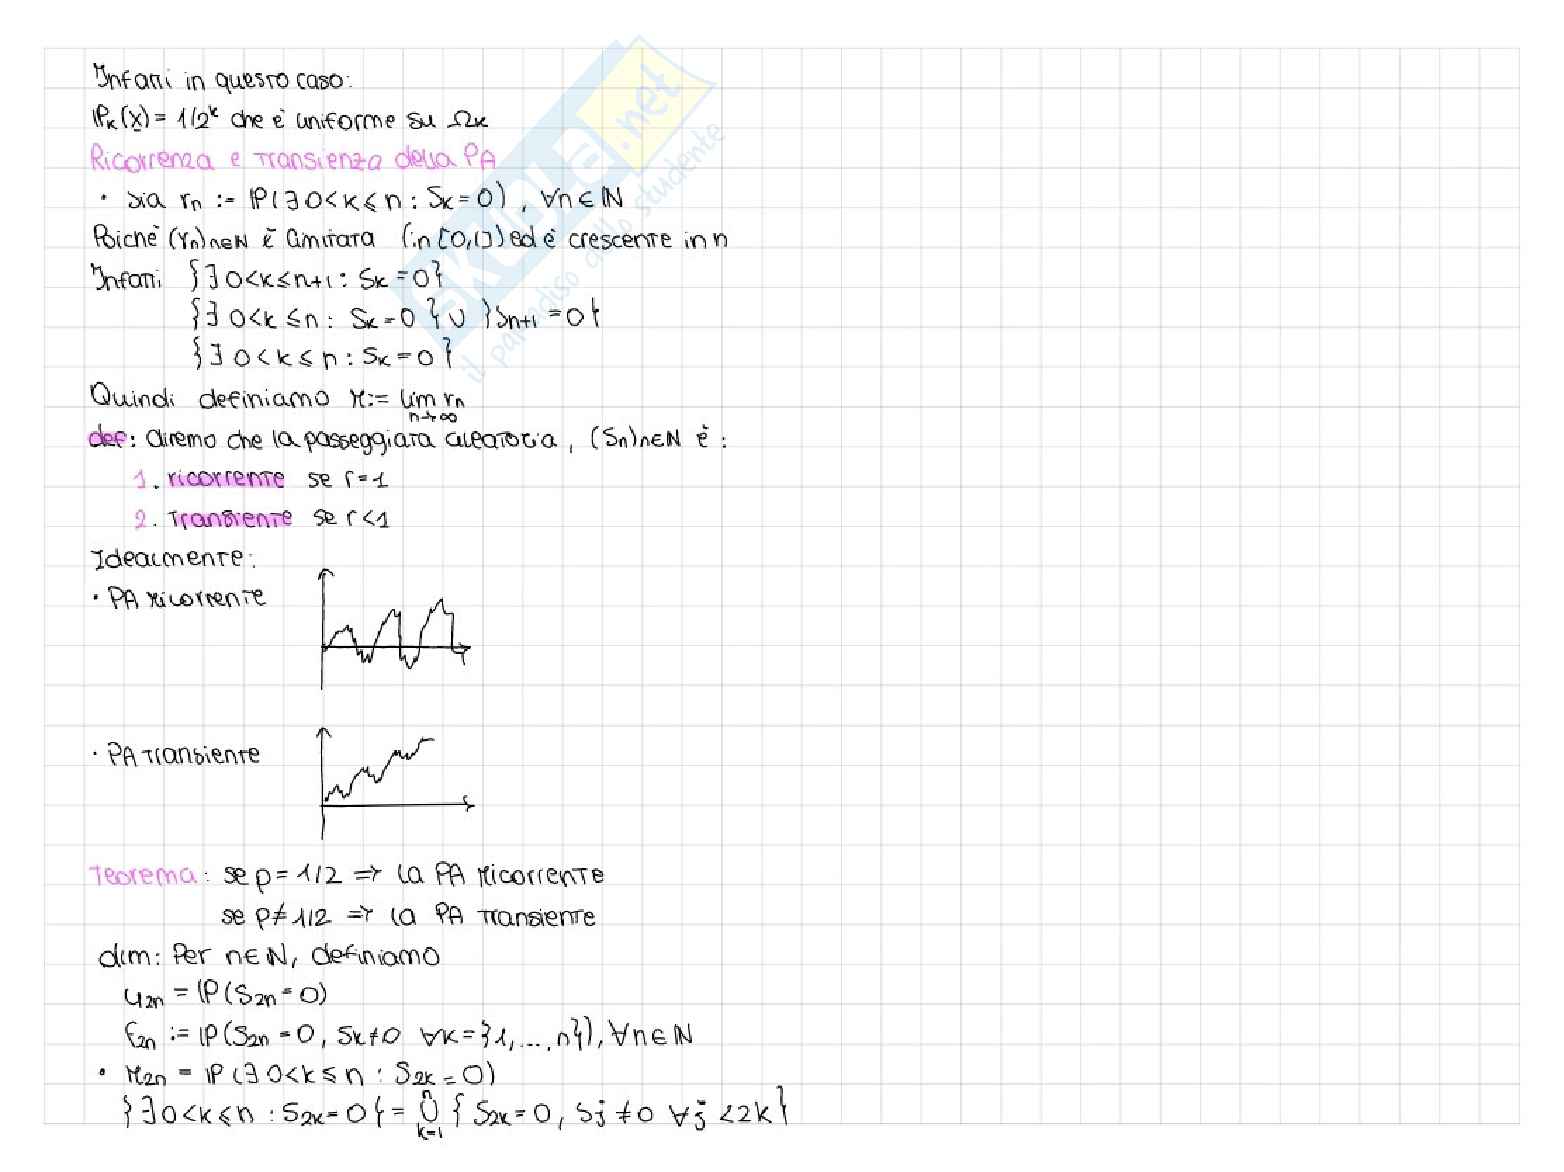 Infatti in questo caso:
ℙₖ(x) = 1/2ᵏ che è uniforme su Ωₖ
Ricorrenza e transienza della PA
• sia rₙ := ℙ(∃ 0<k≤n : Sₖ=0), ∀n∈ℕ
Poiché (rₙ)n∈ℕ è limitata (in [0,1]) ed è crescente in n
Infatti {∃ 0<k≤n+1 : Sₖ=0}
{∃ 0<k≤n : Sₖ=0} ∪ {Sₙ₊₁=0}
{∃ 0<k≤n : Sₖ=0}
Quindi definiamo r:= lim rₙ
n→∞
def: diremo che la passeggiata aleatoria, (Sₙ)n∈ℕ è:
1. ricorrente se r=1
2. transiente se r<1
Idealmente:
• PA ricorrente
• PA transiente
Teorema: se p=1/2 => la PA ricorrente
se p≠1/2 => la PA transiente
dim: Per n∈ℕ, definiamo
u₂ₙ = ℙ(S₂ₙ=0)
f₂ₙ := ℙ(S₂ₙ=0, Sₖ≠0 ∀k={1,...,n}), ∀n∈ℕ
• r₂ₙ = ℙ(∃ 0<k≤n : S₂ₖ=0)
{∃ 0<k≤n : S₂ₖ=0} = ∪ⁿₖ₌₁ {S₂ₖ=0, Sⱼ≠0 ∀j<2k}
SKUOLA.net
il paradiso dello studente